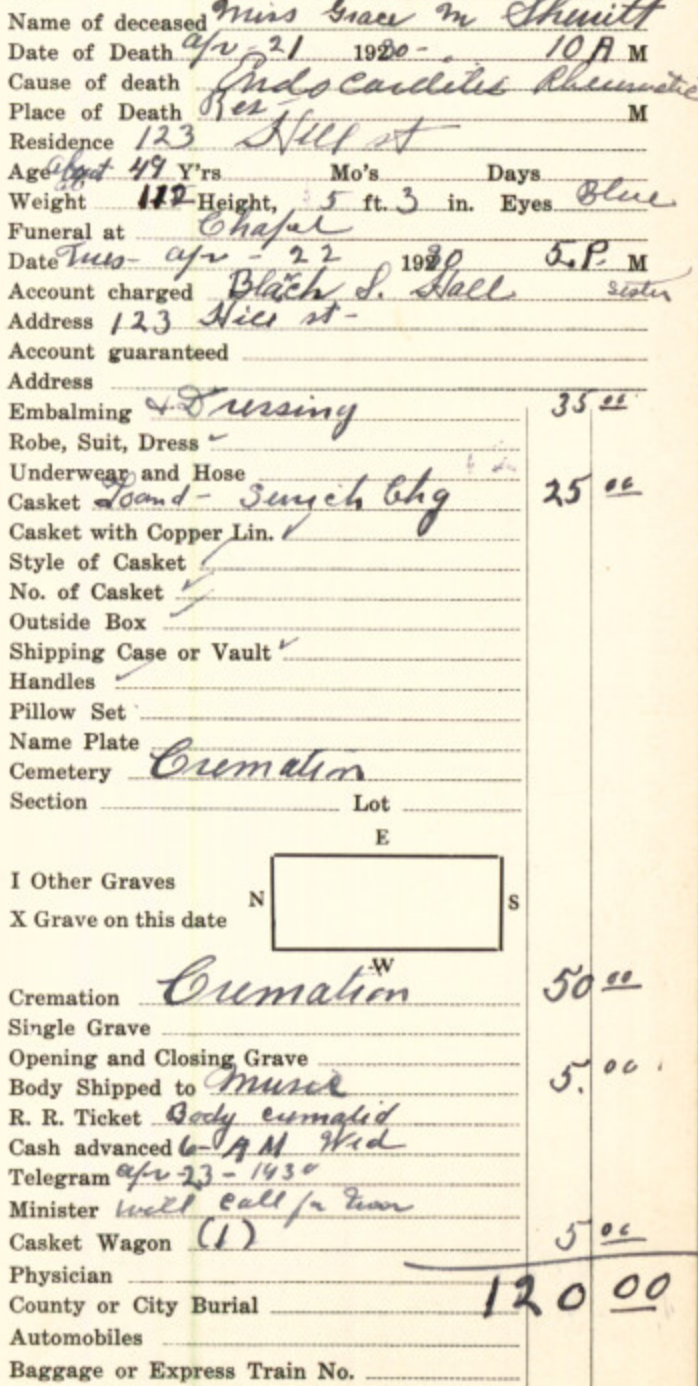 Name of deceased Miss Grace M
Date of Death Apr - 21 1930 - 10 A M
Cause of death Endocarditis Rheumatic
Place of Death Res - M
Residence 123 Hill st
Age about 49 Y'rs Mo's Days
Weight 112 Height, 5 ft. 3 in. Eyes Blue
Funeral at Chapel
Date Tues - apr - 22 1930 5. P. M
Account charged S. Hall sister
Address 123 Hill st -
Account guaranteed
Address
Embalming & Dressing 35 00
Robe, Suit, Dress
Underwear and Hose
Casket Chg 25 00
Casket with Copper Lin.
Style of Casket
No. of Casket
Outside Box
Shipping Case or Vault
Handles
Pillow Set
Name Plate
Cemetery Cremation
Section Lot
E
I Other Graves
N S
X Grave on this date
W
Cremation Cremation 50 00
Single Grave
Opening and Closing Grave
Body Shipped to Music 5. 00
R. R. Ticket Body cremated
Cash advanced 6 - AM Wed
Telegram apr - 23 - 1930
Minister will call for
Casket Wagon (1) 5 00
Physician
County or City Burial 120 00
Automobiles
Baggage or Express Train No.